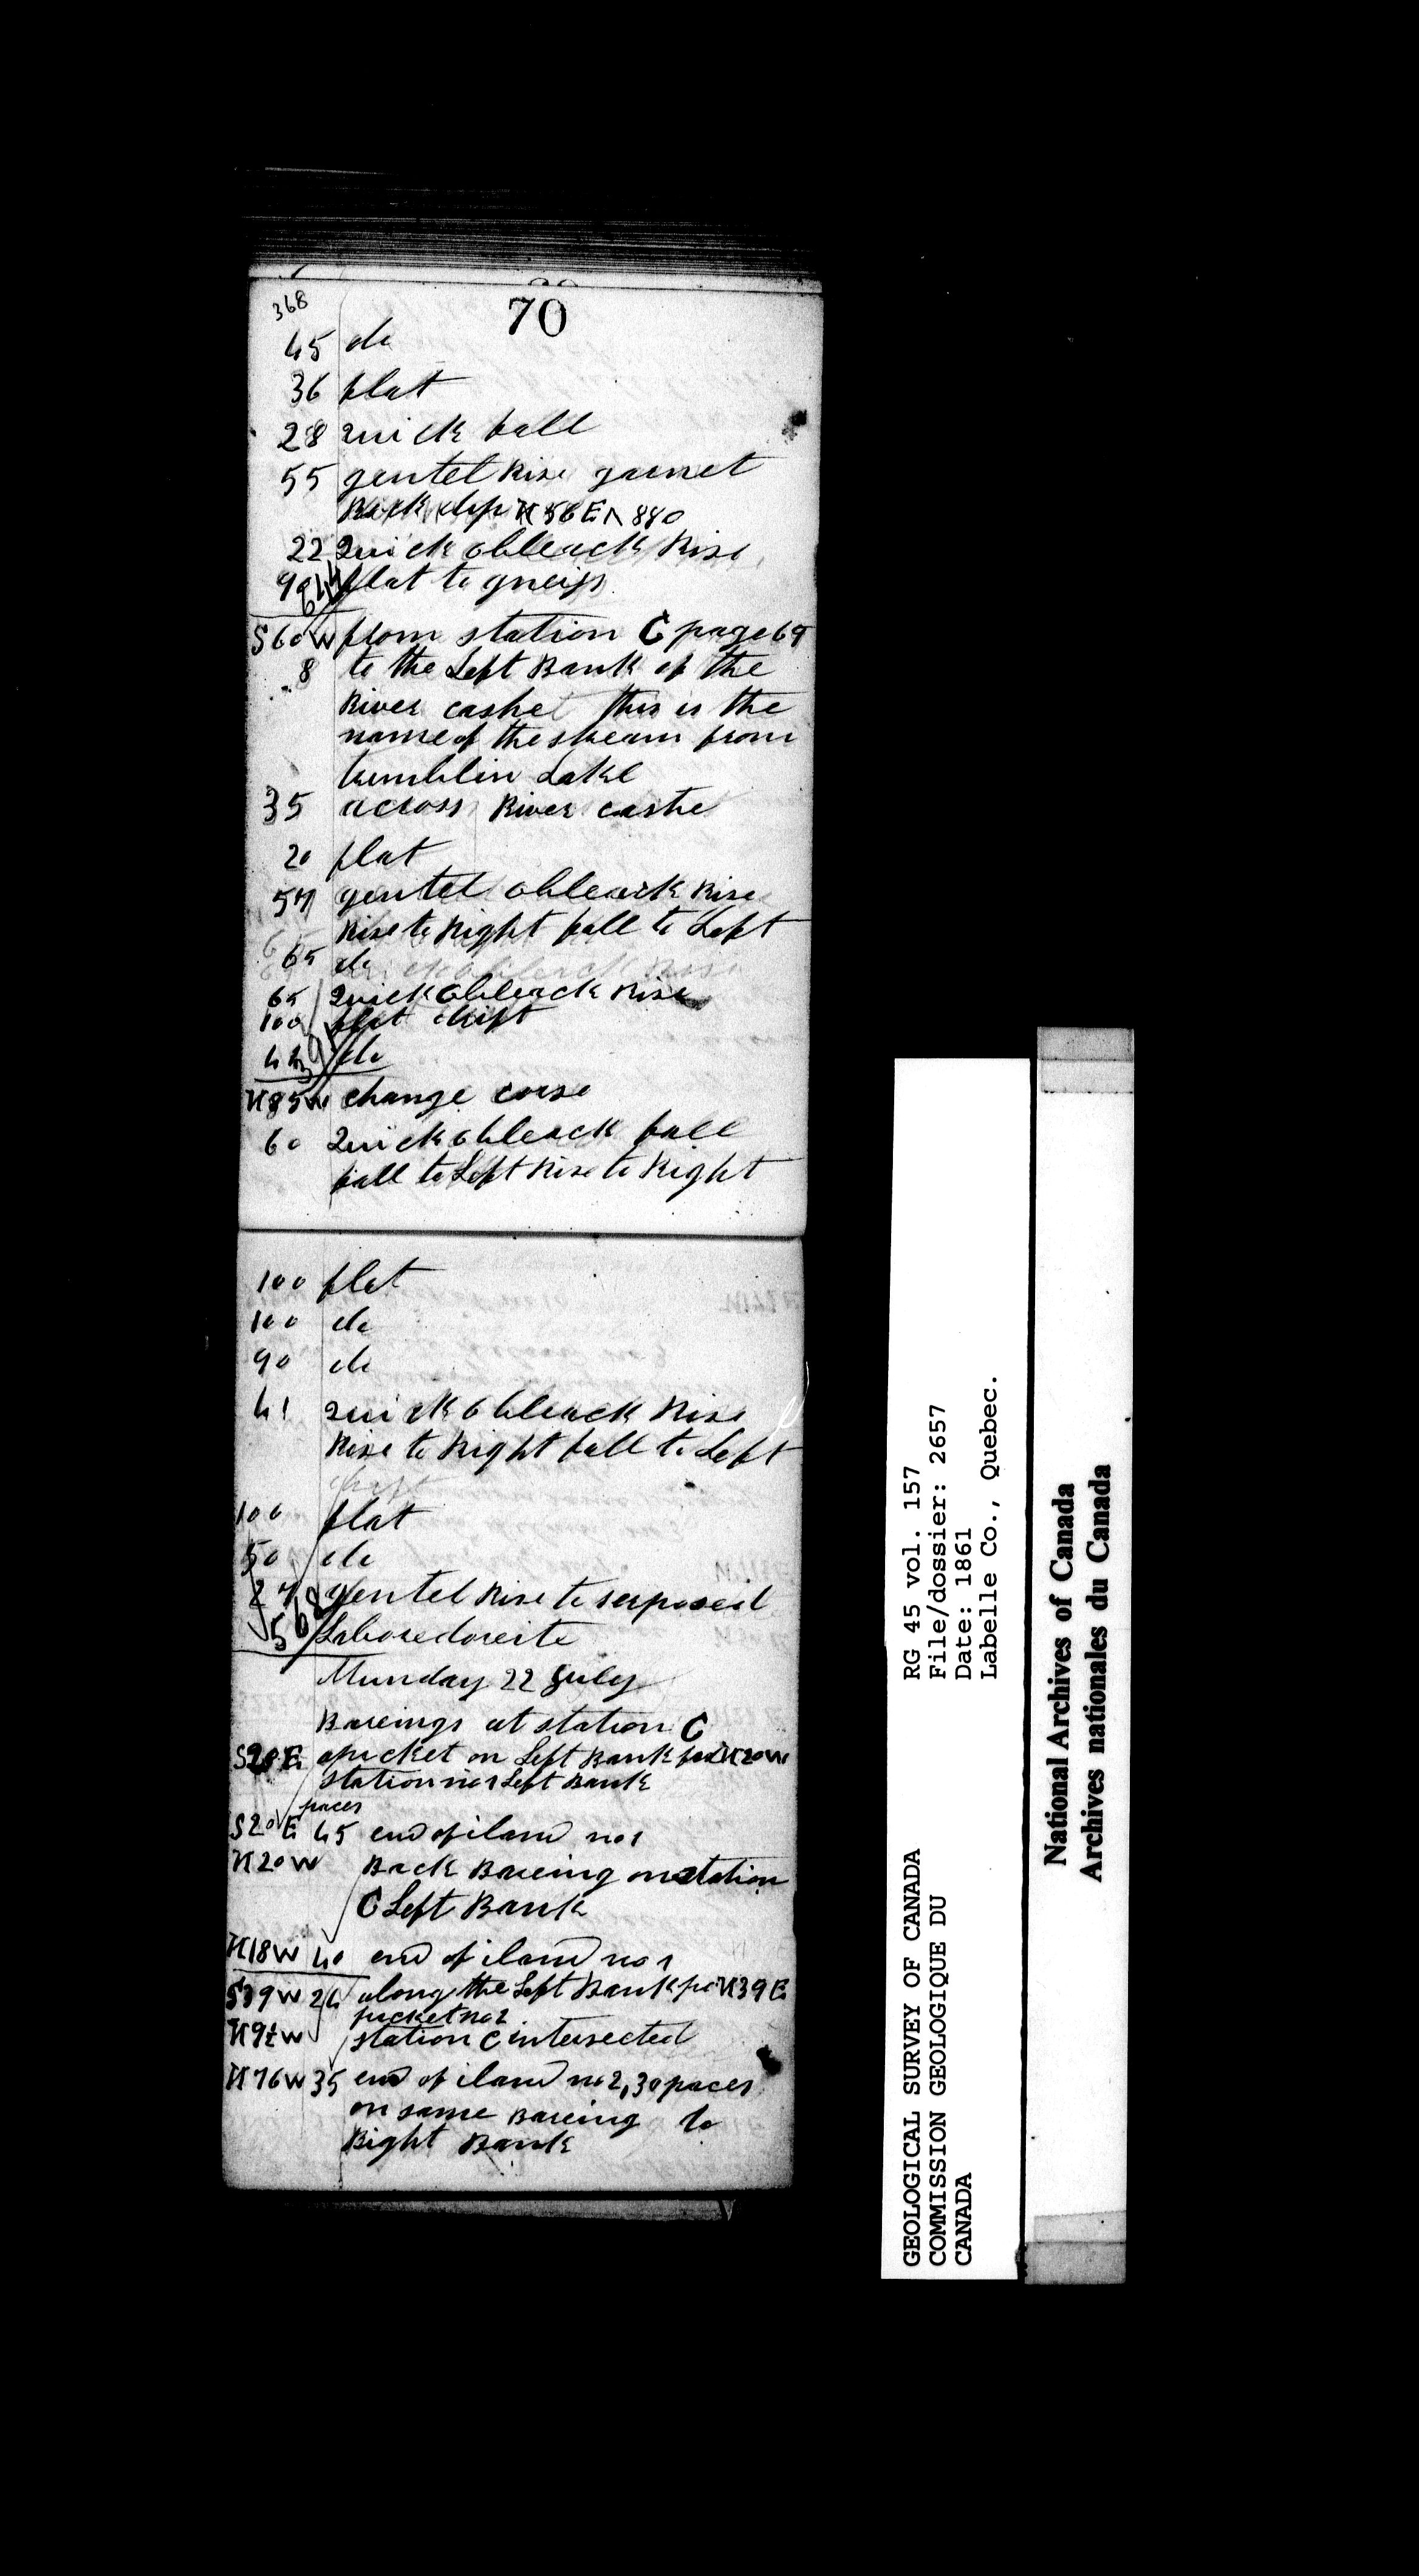 70
368
45 do
36 flat
28 quick fall
55 gentel Rise garnet
Rock dip N 56 E ^ 880
22 Quick obleack Rise
90 flat to gneiss
644
S60W from station C page 69
8 to the Left Bank of the
River cashe this is the
name of the stream from
tumblin Lake
35 across River cashe
20 flat
57 gentel obleack Rise
Rise to Right fall to Left
65 do
65 Quick obleack Rise
100 flat drift
44 do
N85W change corse
60 Quick obleack fall
fall to Left Rise to Right
100 flat
100 do
90 do
41 quick obleack Rise
Rise to Right fall to Left
100 flat
50 do
27 gentel Rise to serposed
568 Laboredoreite
Munday 22 July
Bareings at station C
S20E a picket on Left Bank N20W
station no 1 Left Bank
paces
S20E 45 end of iland no 1
N20W Back Bareing on station
C Left Bank
N18W 40 end of iland no 1
S39W 24 along the Left Bank N39E
picket no 2
N9½W station C intersected
N76W 35 end of iland no 2, 30 paces
on same Bareing to
Right Bank
GEOLOGICAL SURVEY OF CANADA
COMMISSION GEOLOGIQUE DU
CANADA
RG 45 vol. 157
File/dossier: 2657
Date: 1861
Labelle Co., Quebec.
National Archives of Canada
Archives nationales du Canada